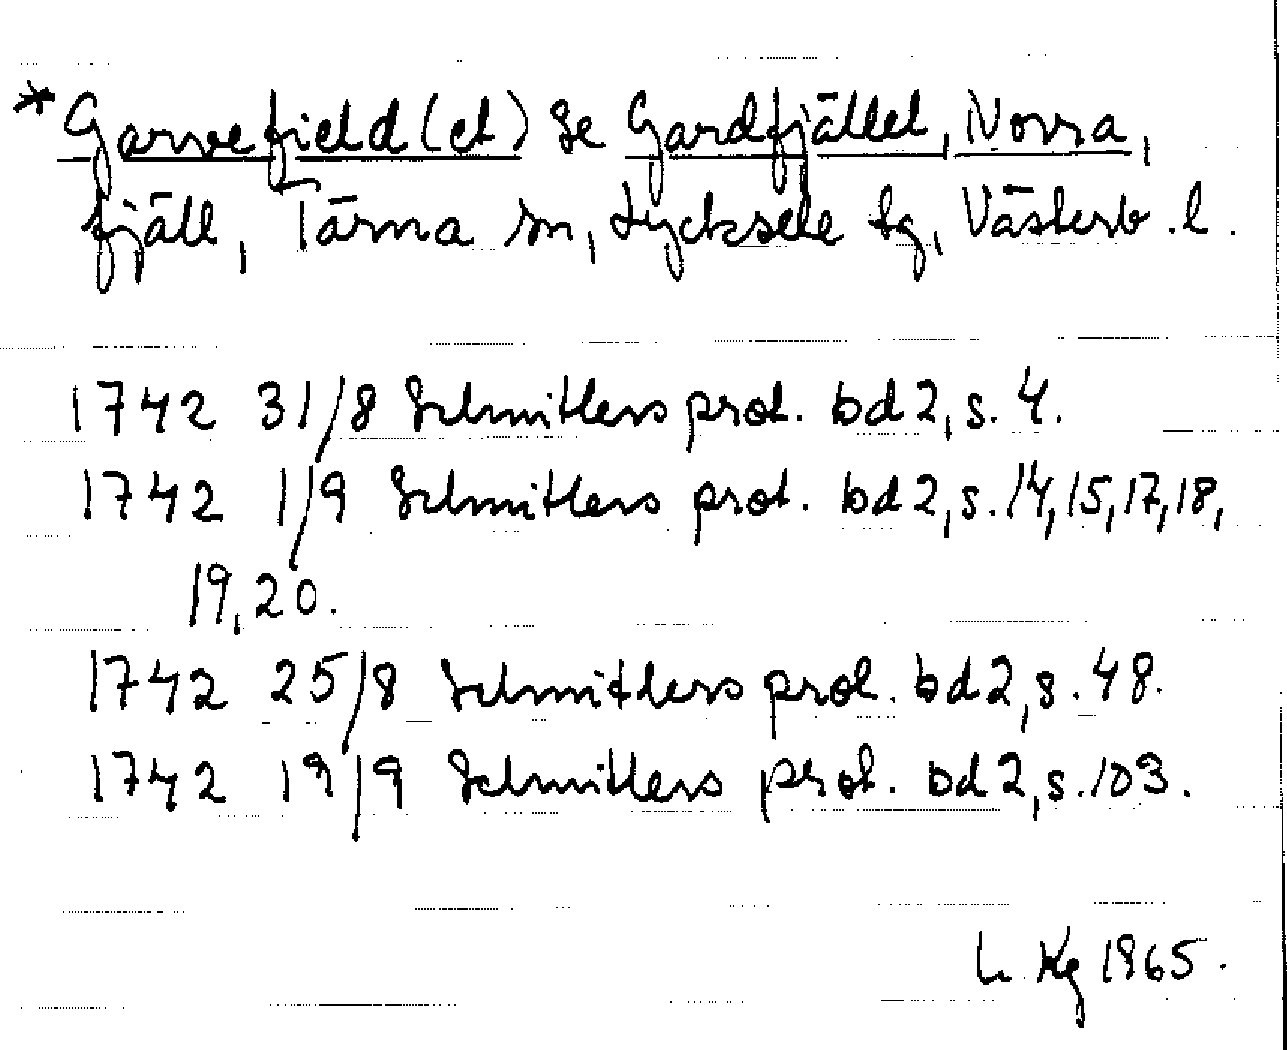 * Garvefield(et) se Gardfjället, Norra,
fjäll, Tärna sn, Lycksele lg, Västerb. l.
1742 31/8 Schnitlers prot. bd 2, s. 4.
1742 1/9 Schnitlers prot. bd 2, s. 14, 15, 17, 18,
19, 20.
1742 25/8 Schnitlers prot. bd 2, s. 48.
1742 19/9 Schnitlers prot. bd 2, s. 103.
Kg 1965.